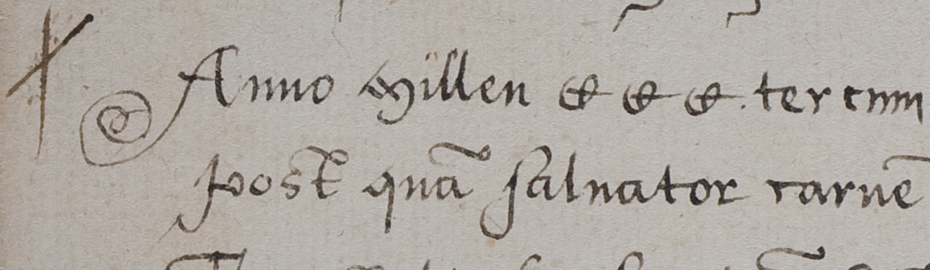 Anno Millen CCC ter cum
post quā saluator carnē